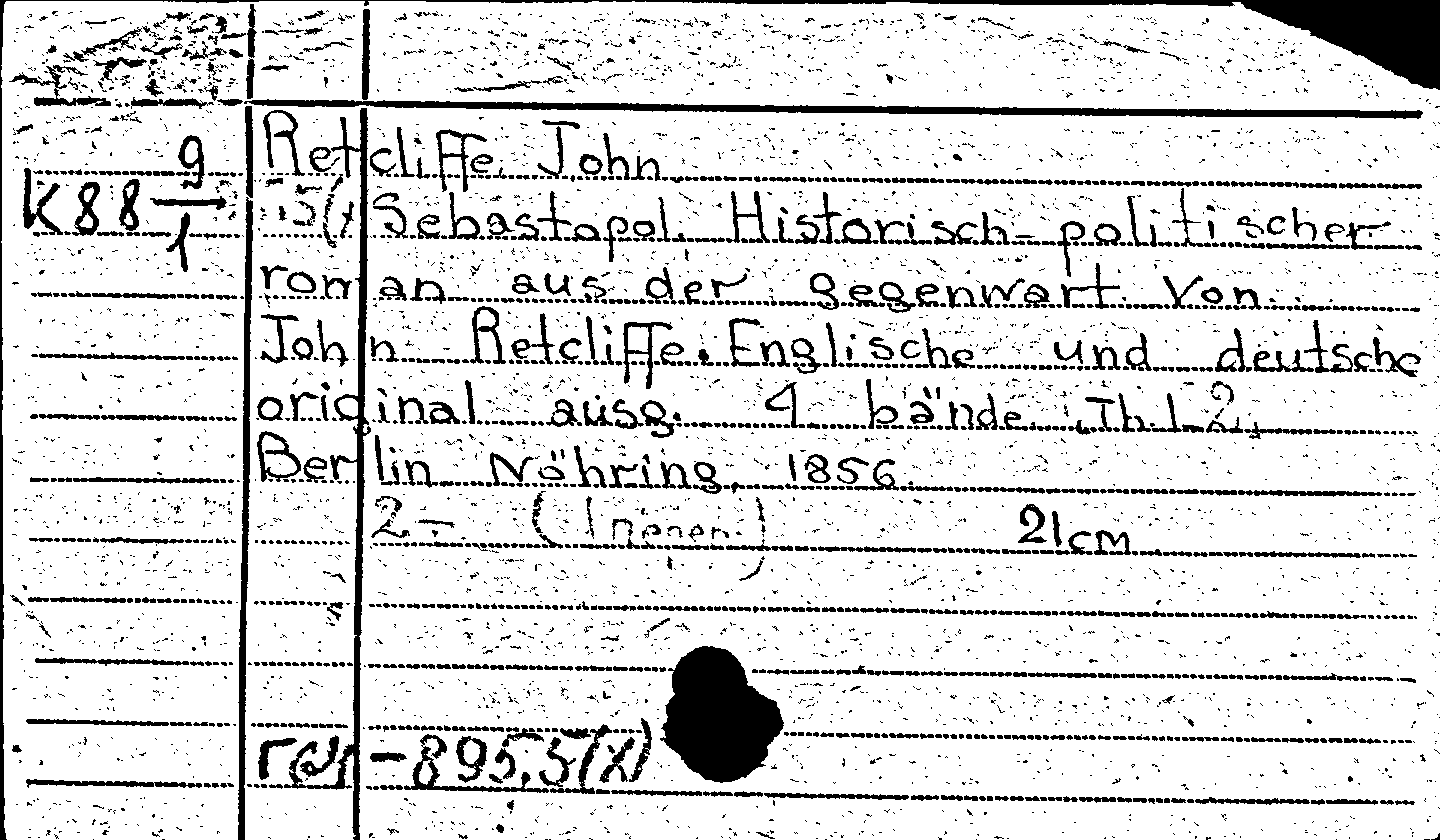 Retcliffe, John.
K88 9/1
Sebastopol. Historisch-politischer
roman aus der gegenwart. Von
John Retcliffe. Englische und deutsche
original ausg. 4 bände. Th. 1-2.
Berlin Nöhring, 1856.
2-
21cm
-895.5(X)